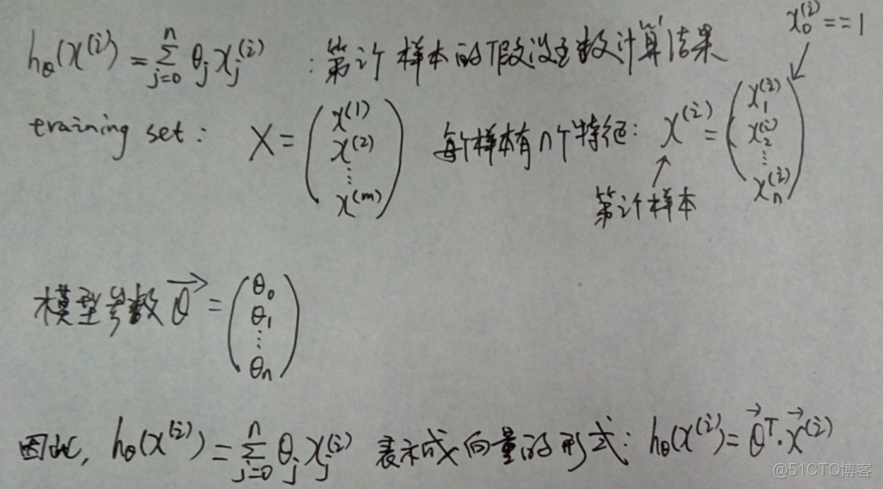 hθ(x^(i)) = Σ_{j=0}^{n} θ_j x_j^(i) : 第i个样本的假设函数计算结果 x_0^(i) == 1
training set: X = (x^(1) x^(2) ⋮ x^(m)) 每个样本有n个特征: x^(i) = (x_1^(i) x_2^(i) ⋮ x_n^(i))
第i个样本
模型参数 θ⃗ = (θ_0 θ_1 ⋮ θ_n)
因此, hθ(x^(i)) = Σ_{j=0}^{n} θ_j x_j^(i) 表示成向量的形式: hθ(x^(i)) = θ⃗^T · x⃗^(i)
@51CTO博客